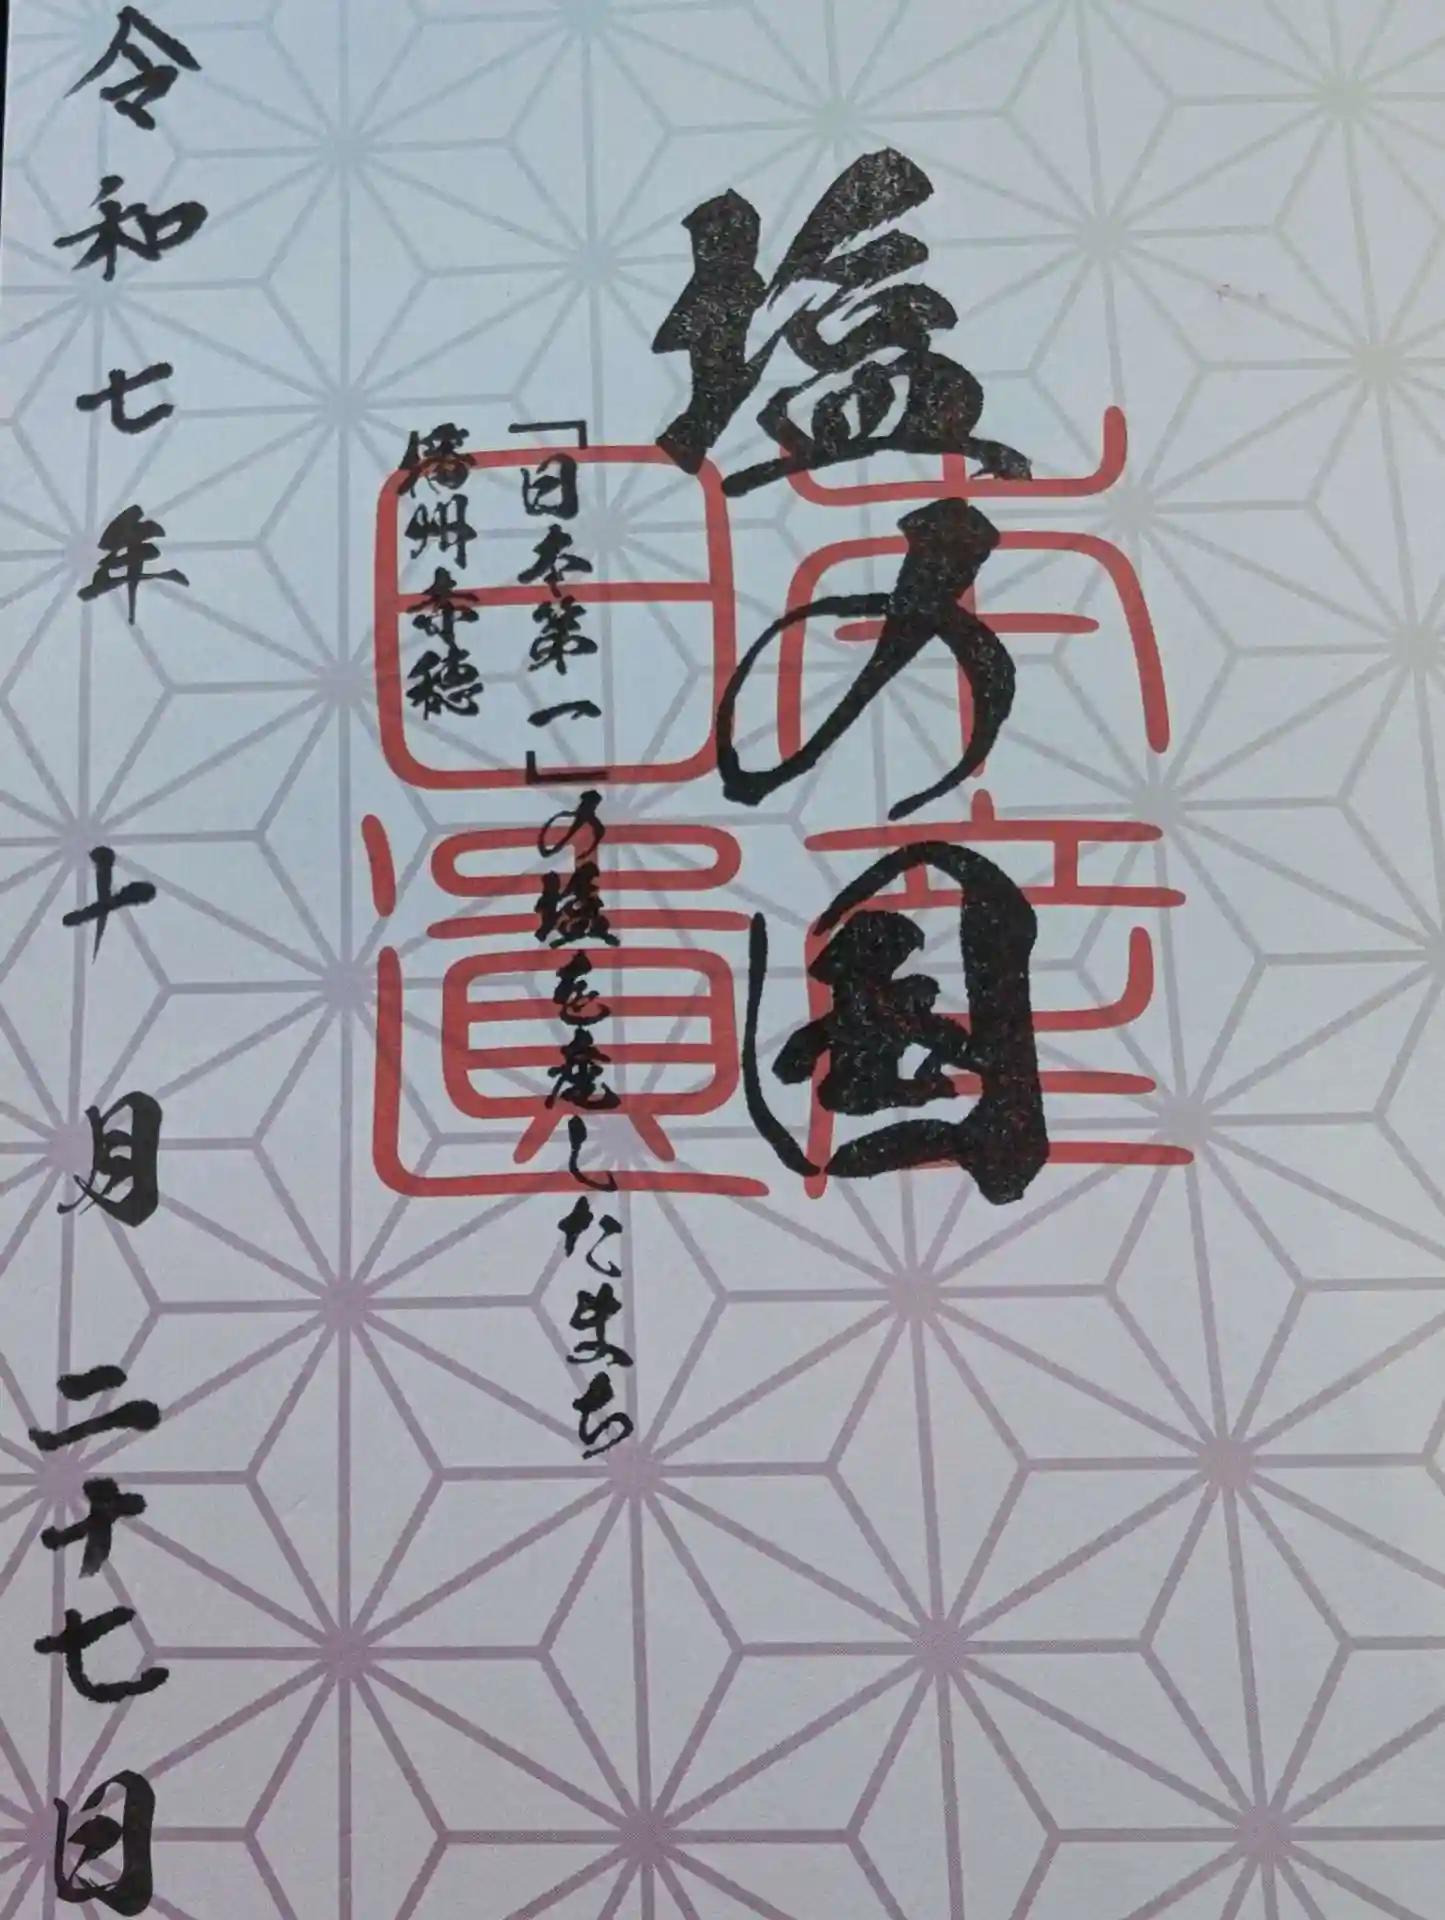 塩の国
「日本第一」の塩を産したまち
播州赤穂
日本
遺産
令和七年十月二十七日